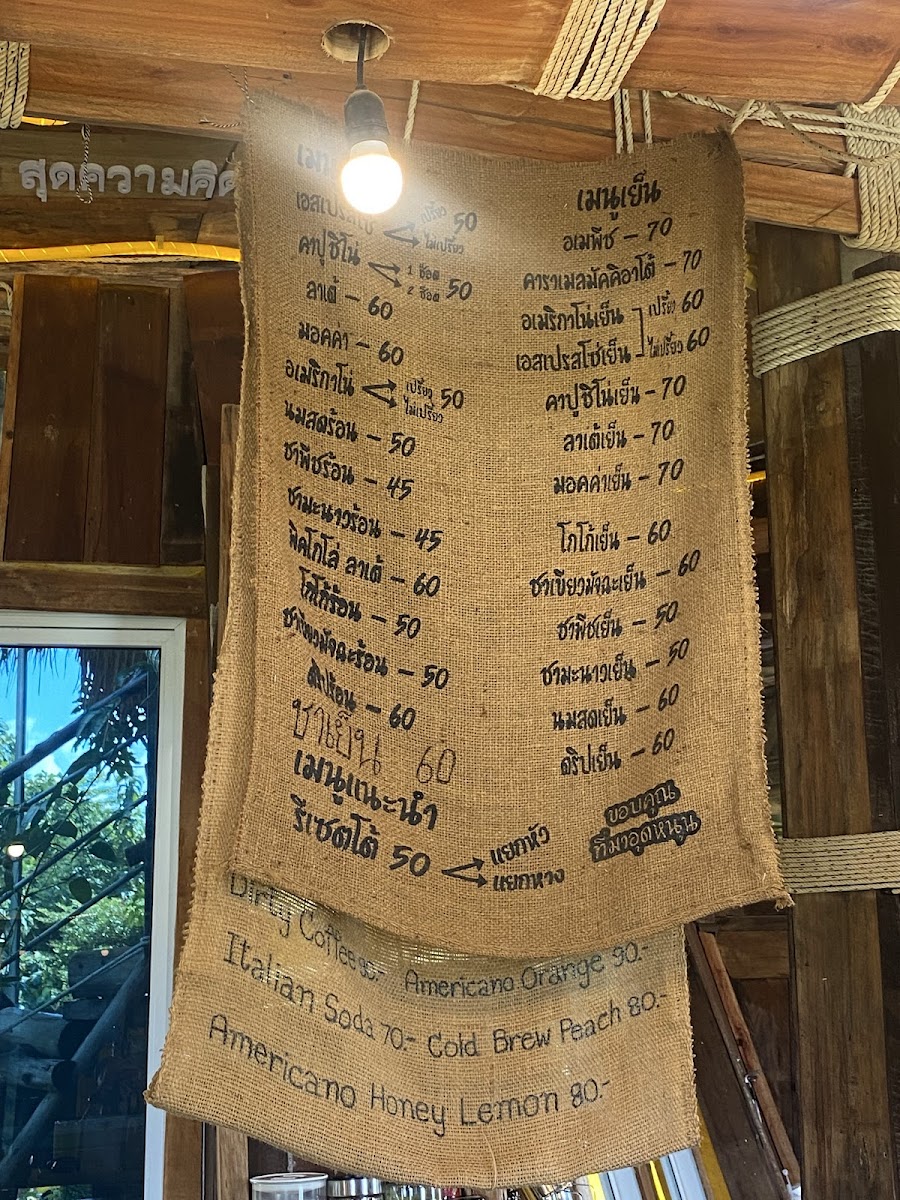 สุดความคิด
เมนูเย็น
เอสเปรสโซ่ เปรี้ยว ไม่เปรี้ยว 50
คาปูชิโน่ 1 ช็อต 2 ช็อต 50
ลาเต้ - 60
มอคค่า - 60
อเมริกาโน่ เปรี้ยว ไม่เปรี้ยว 50
นมสดร้อน - 50
ชาพีชร้อน - 45
ชามะนาวร้อน - 45
พิคโกโล่ ลาเต้ - 60
โกโก้ร้อน - 50
ชาเขียวมัจฉะร้อน - 50
ดริปร้อน - 60
ชาเย็น 60
เมนูแนะนำ
รีเซตโต้ 50 แยกหัว แยกหาง
อเมพีช - 70
คาราเมลมัคคิอาโต้ - 70
อเมริกาโน่เย็น เปรี้ยว 60
เอสเปรสโซ่เย็น ไม่เปรี้ยว 60
คาปูชิโน่เย็น - 70
ลาเต้เย็น - 70
มอคค่าเย็น - 70
โกโก้เย็น - 60
ชาเขียวมัจฉะเย็น - 60
ชาพีชเย็น - 50
ชามะนาวเย็น - 50
นมสดเย็น - 60
ดริปเย็น - 60
ขอบคุณ
ที่มาอุดหนุน
Dirty Coffee 80.- Americano Orange 90.-
Italian Soda 70.- Cold Brew Peach 80.-
Americano Honey Lemon 80.-